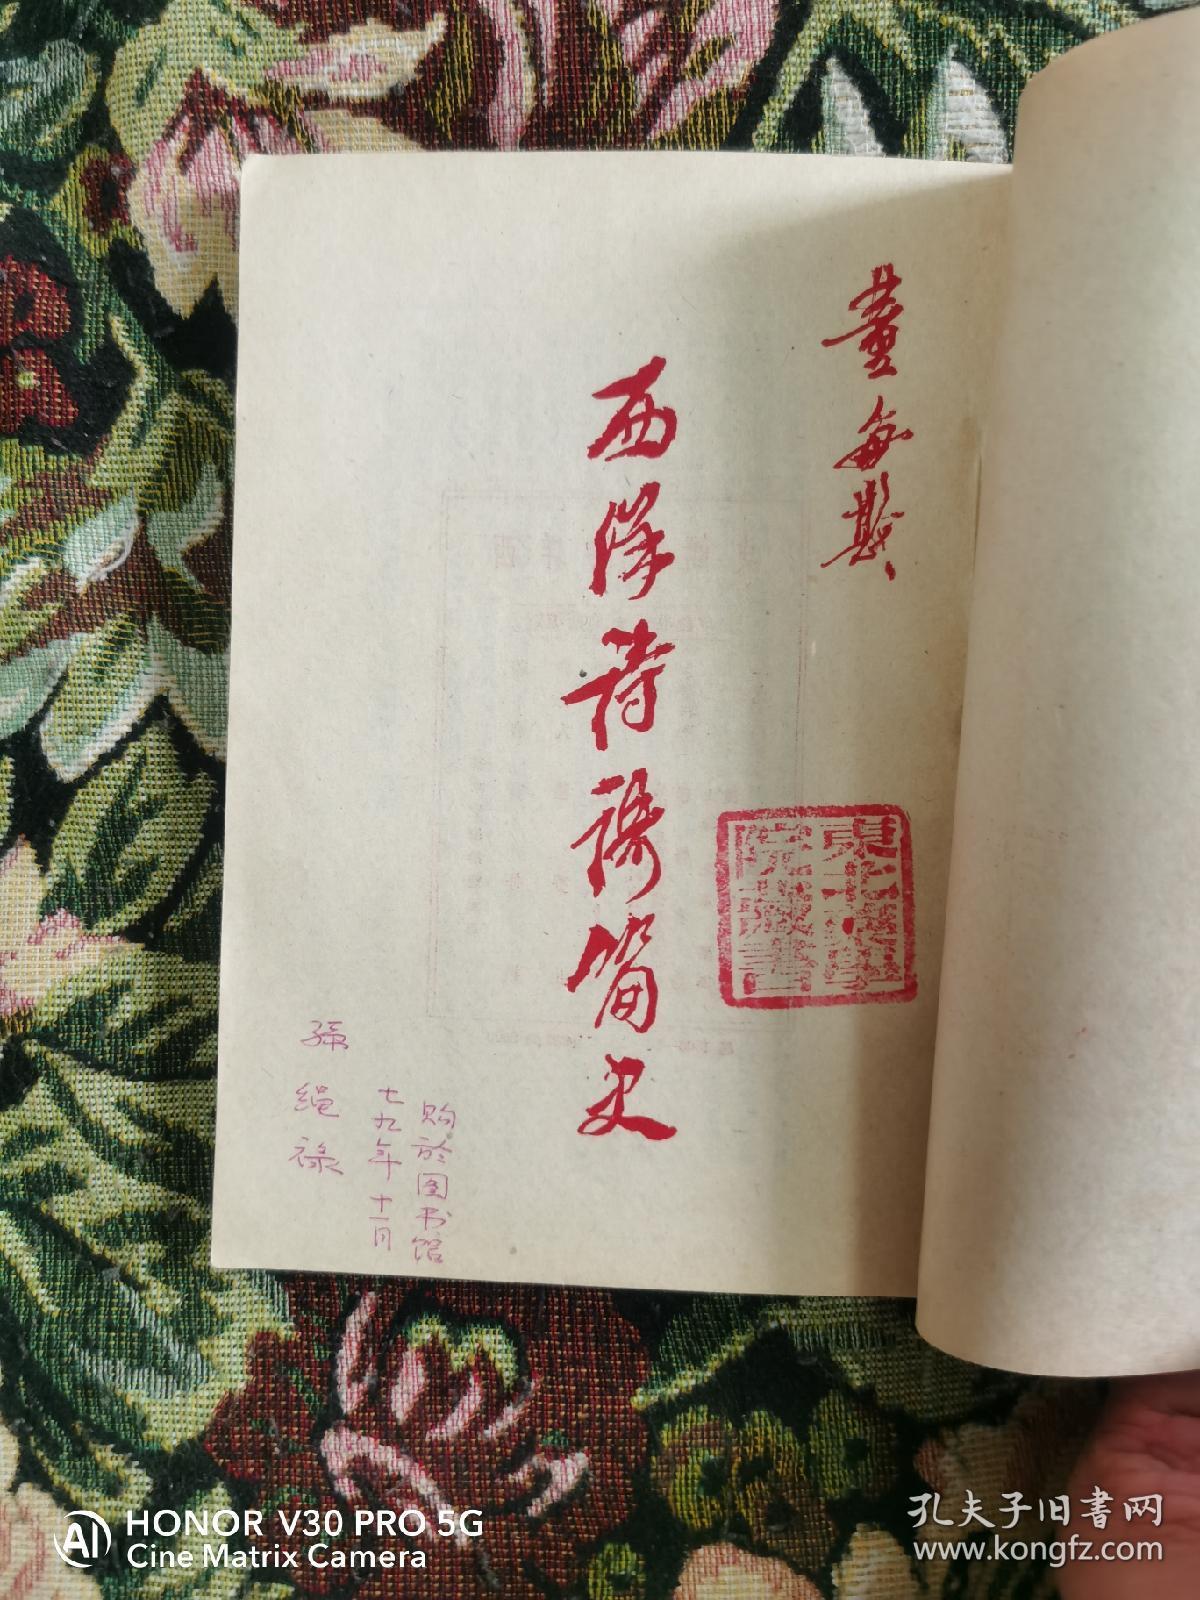 董每戡
西洋诗歌简史
東北大學
院藏書
购於图书馆
七九年十一月
孫绳禄
HONOR V30 PRO 5G
Cine Matrix Camera
AI
孔夫子旧書网
www.kongfz.com